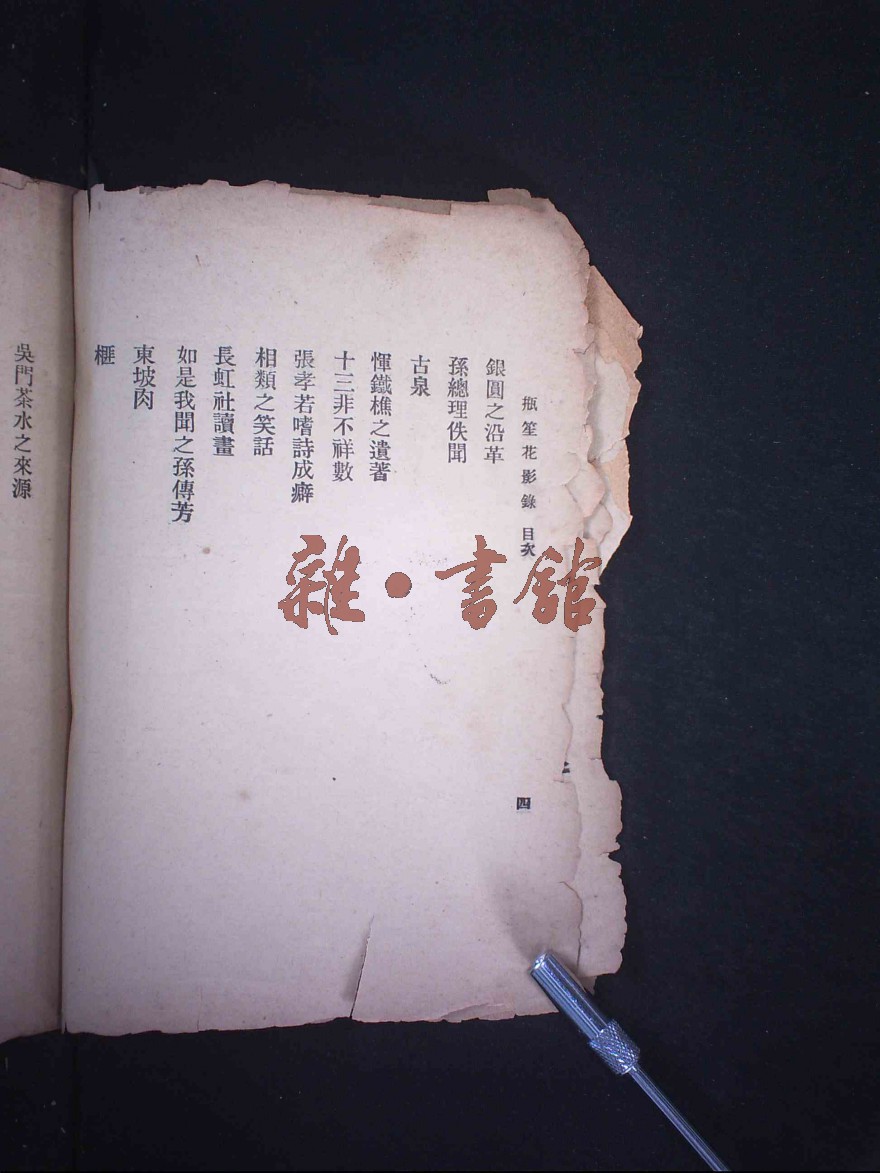 瓶笙花影錄 目次
四
銀圓之沿革
孫總理佚聞
古泉
惲鐵樵之遺著
十三非不祥數
張孝若嗜詩成癖
相類之笑話
長虹社讀畫
如是我聞之孫傳芳
東坡肉
榧
吳門茶水之來源
雜·書館